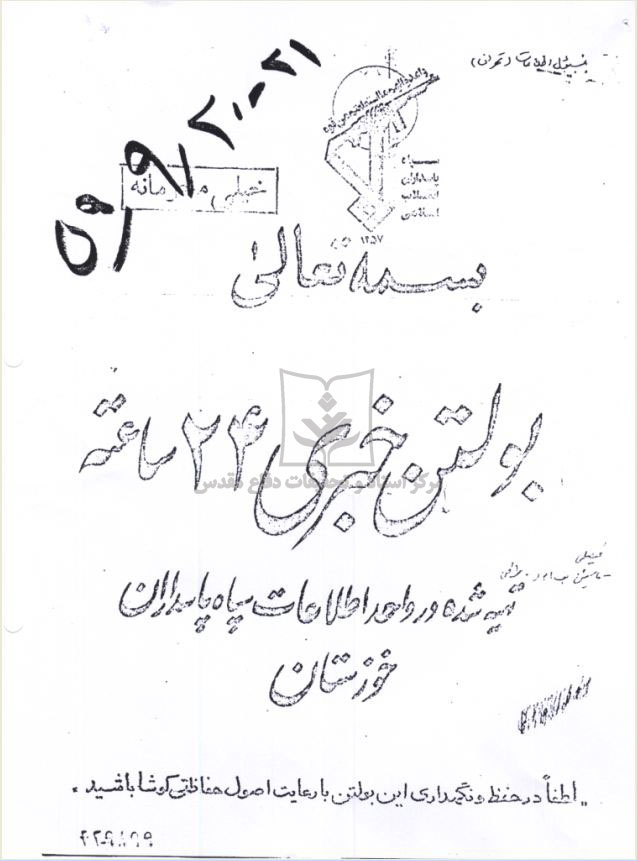 سپاه
پاسداران
انقلاب
اسلامی
۱۳۵۷
خیلی محرمانه
بسمه تعالی
بولتن خبری ۲۴ ساعته
مرکز اسناد و تحقیقات دفاع مقدس
تهیه شده در واحد اطلاعات سپاه پاسداران
خوزستان
"لطفاً در حفظ و نگهداری این بولتن با رعایت اصول حفاظتی کوشا باشید."